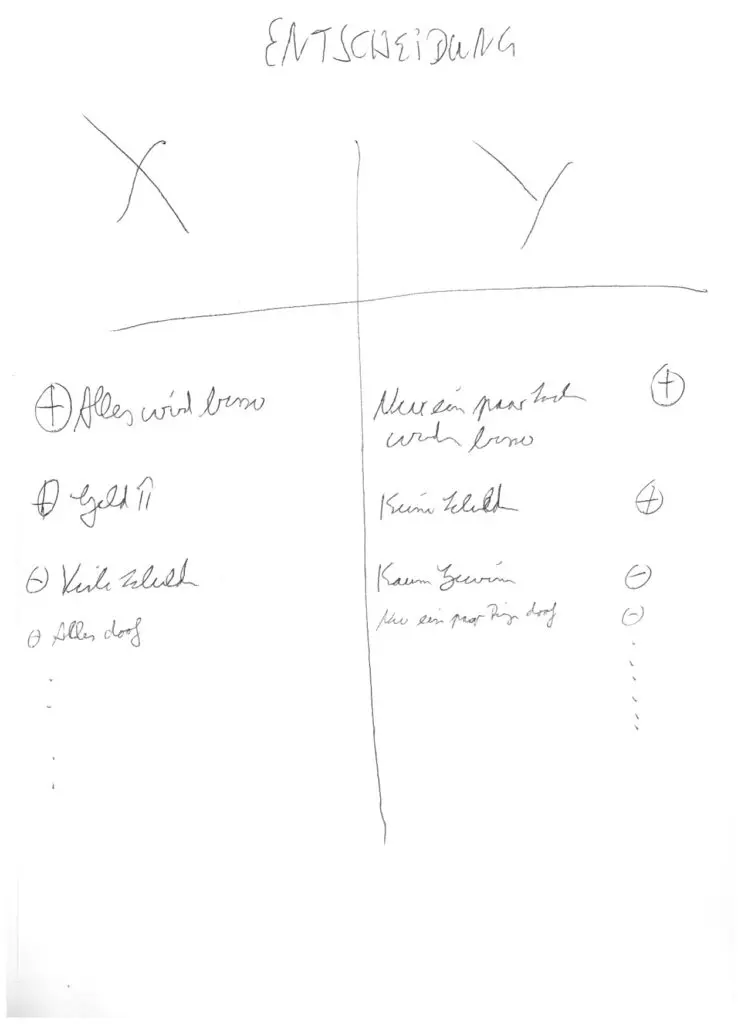 ENTSCHEIDUNG
X
Y
⊕ Alles wird besser
⊕ Geld ⇑
⊖ Viele Schulden
⊖ Alles doof
Nur ein paar Sachen ⊕
werden besser
Keine Schulden ⊕
Kaum Gewinn ⊖
Nur ein paar Dinge doof ⊖